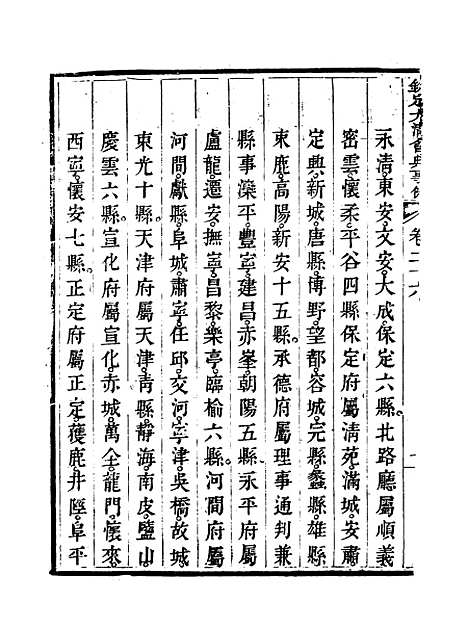 欽定大清會典事例 卷二十六
永清東安文安大成保定六縣北路廳屬順義
密雲懷柔平谷四縣保定府屬清苑滿城安肅
定興新城唐縣博野望都容城完縣蠡縣雄縣
束鹿高陽新安十五縣承德府屬理事通判兼
縣事灤平豐寧建昌赤峯朝陽五縣永平府屬
盧龍遷安撫寧昌黎樂亭臨榆六縣河間府屬
河間獻縣阜城肅寧任邱交河寧津吳橋故城
東光十縣天津府屬天津青縣靜海南皮鹽山
慶雲六縣宣化府屬宣化赤城萬全龍門懷來
西寧懷安七縣正定府屬正定獲鹿井陘阜平